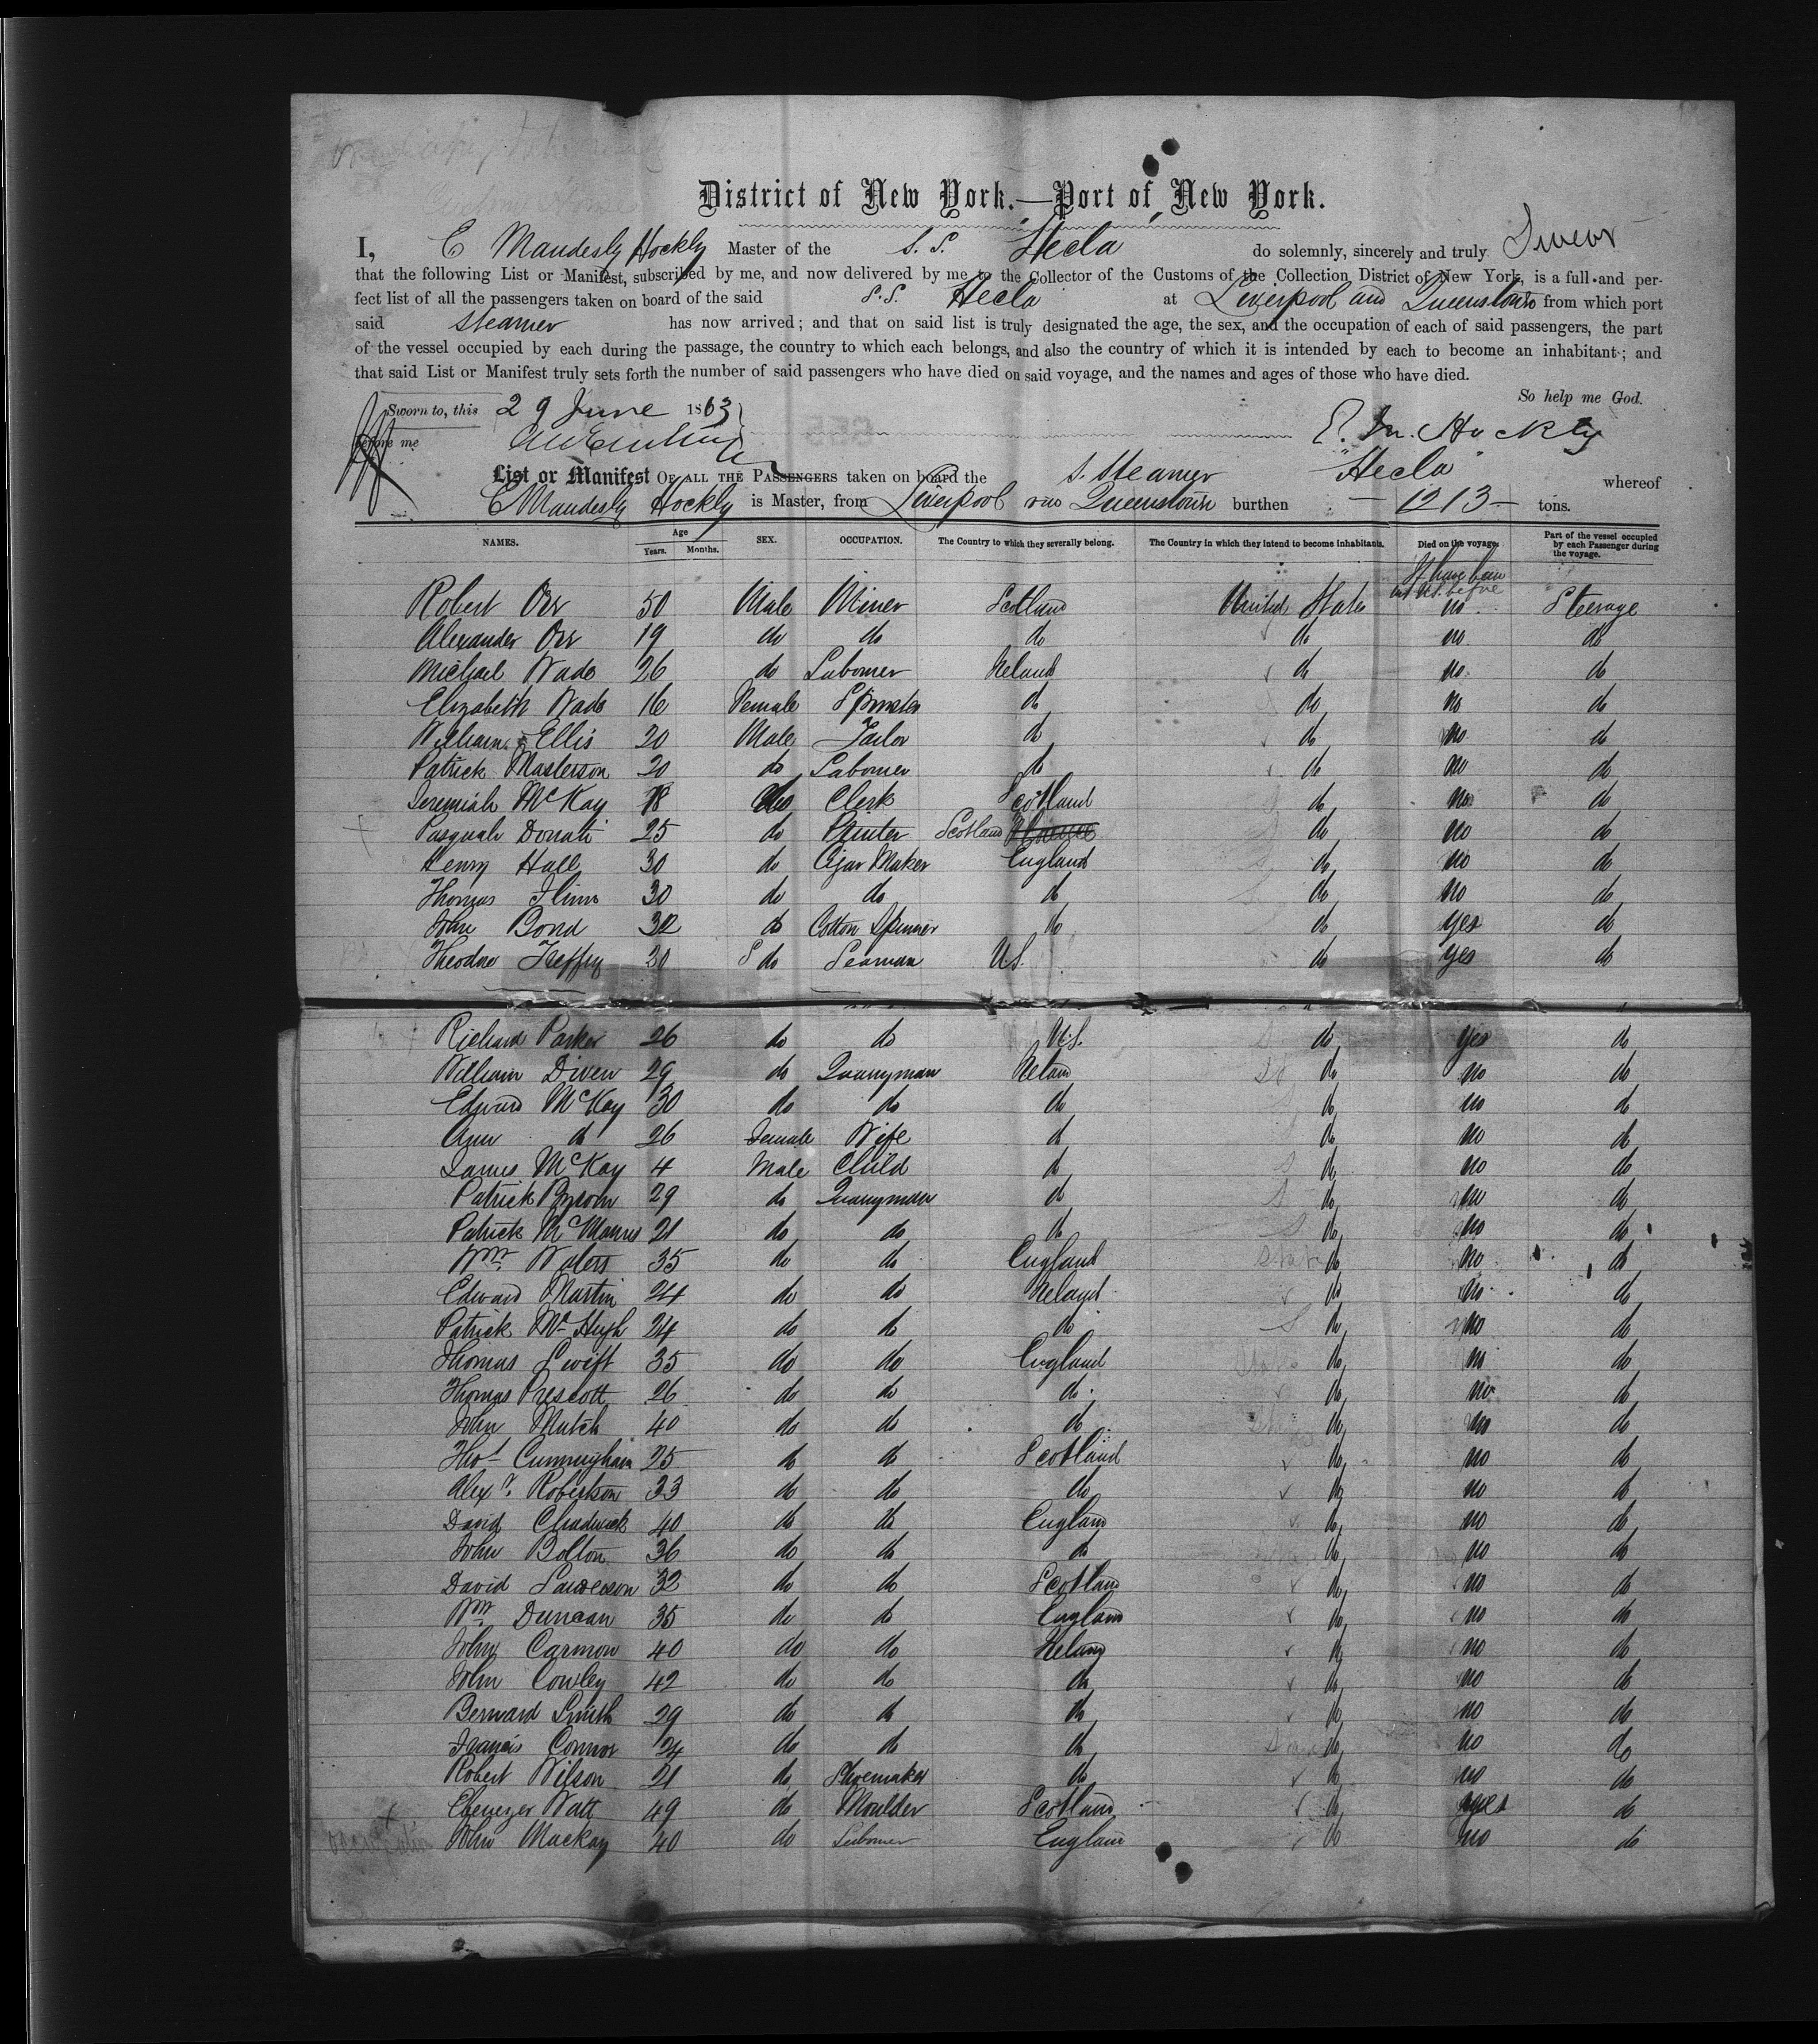 District of New York.—Port of New York.
I, E Maudesly Hockly Master of the S.S. Hecla do solemnly, sincerely and truly Swear
that the following List or Manifest, subscribed by me, and now delivered by me to the Collector of the Customs of the Collection District of New York, is a full and per-
fect list of all the passengers taken on board of the said S.S. Hecla at Liverpool and Queenstown from which port
said steamer has now arrived; and that on said list is truly designated the age, the sex, and the occupation of each of said passengers, the part
of the vessel occupied by each during the passage, the country to which each belongs, and also the country of which it is intended by each to become an inhabitant; and
that said List or Manifest truly sets forth the number of said passengers who have died on said voyage, and the names and ages of those who have died.
So help me God.
Sworn to, this 29 June 1863
before me E. M. Hockly
List or Manifest OF ALL THE PASSENGERS taken on board the S. Steamer "Hecla" whereof
E Maudesly Hockly is Master, from Liverpool and Queenstown burthen — 1213 — tons.
NAMES. Age Years. Months. SEX. OCCUPATION. The Country to which they severally belong. The Country in which they intend to become inhabitants. Died on the voyage. Part of the vessel occupied by each Passenger during the voyage.
If have been in U.S. before
Robert Orr 50 Male Miner Scotland United States no Steerage
Alexander Orr 19 do do do do no do
Michael Wade 26 do Labourer Ireland do no do
Elizabeth Wade 16 Female Spinster do do no do
William Ellis 20 Male Tailor do do no do
Patrick Masterson 20 do Labourer do do no do
Jeremiah McKay 18 do Clerk Scotland do no do
Pasquale Donati 25 do Printer Scotland do no do
Henry Hall 30 do Cigar Maker England do no do
Thomas Flinn 30 do do do do no do
John Bond 32 do Cotton Spinner do do yes do
Theodore Treffry 30 do Seaman U.S. do yes do
Richard Parker 26 do do U.S. do yes do
William Diven 29 do Quarryman Ireland do no do
Edward McKay 30 do do do do no do
Ann do 26 Female Wife do do no do
James McKay 4 Male Child do do no do
Patrick Byrom 29 do Quarryman do do no do
Patrick McManus 21 do do do do no do
Wm Waters 35 do do England do no do
Edward Martin 24 do do Ireland do no do
Patrick McHugh 24 do do do do no do
Thomas Swift 35 do do England do no do
Thomas Prescott 26 do do do do no do
John Mutch 40 do do do do no do
Thos Cunningham 25 do do Scotland do no do
Alexr Robertson 33 do do do do no do
David Chadwick 40 do do England do no do
John Bolton 36 do do do do no do
David Sanderson 32 do do Scotland do no do
Wm Duncan 35 do do England do no do
John Carmon 40 do do Ireland do no do
John Cowley 42 do do do do no do
Bernard Smith 29 do do do do no do
Francis Connor 24 do do do do no do
Robert Wilson 21 do Shoemaker do do no do
Ebenezer Watt 49 do Moulder Scotland do yes do
John Mackay 40 do Labourer England do no do